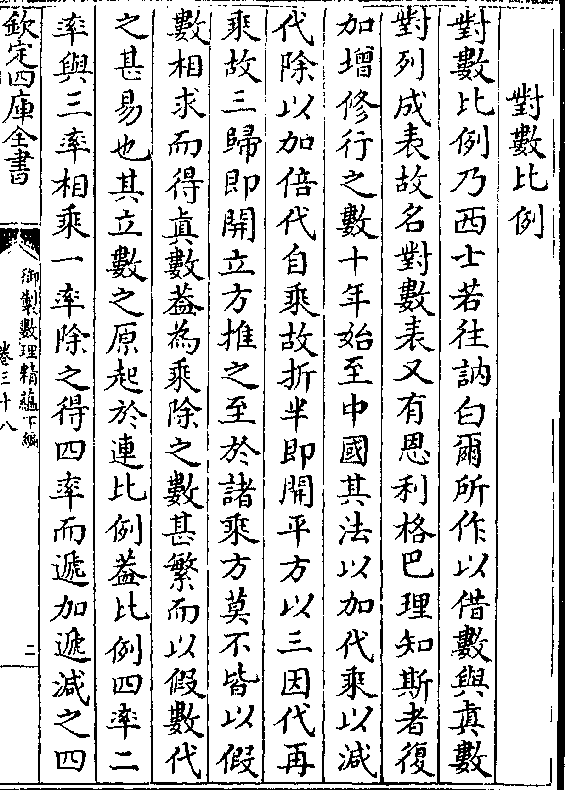 對數比例
對數比例乃西士若往訥白爾所作以借數與真數
對列成表故名對數表又有恩利格巴理知斯者復
加增修行之數十年始至中國其法以加代乘以減
代除以加倍代自乘故折半即開平方以三因代再
乘故三歸即開立方推之至於諸乘方莫不皆以假
數相求而得真數葢為乘除之數甚繁而以假數代
之甚易也其立數之原起於連比例葢比例四率二
率與三率相乘一率除之得四率而遞加遞減之四
欽定四庫全書
御製數理精蘊下編
卷三十八
二